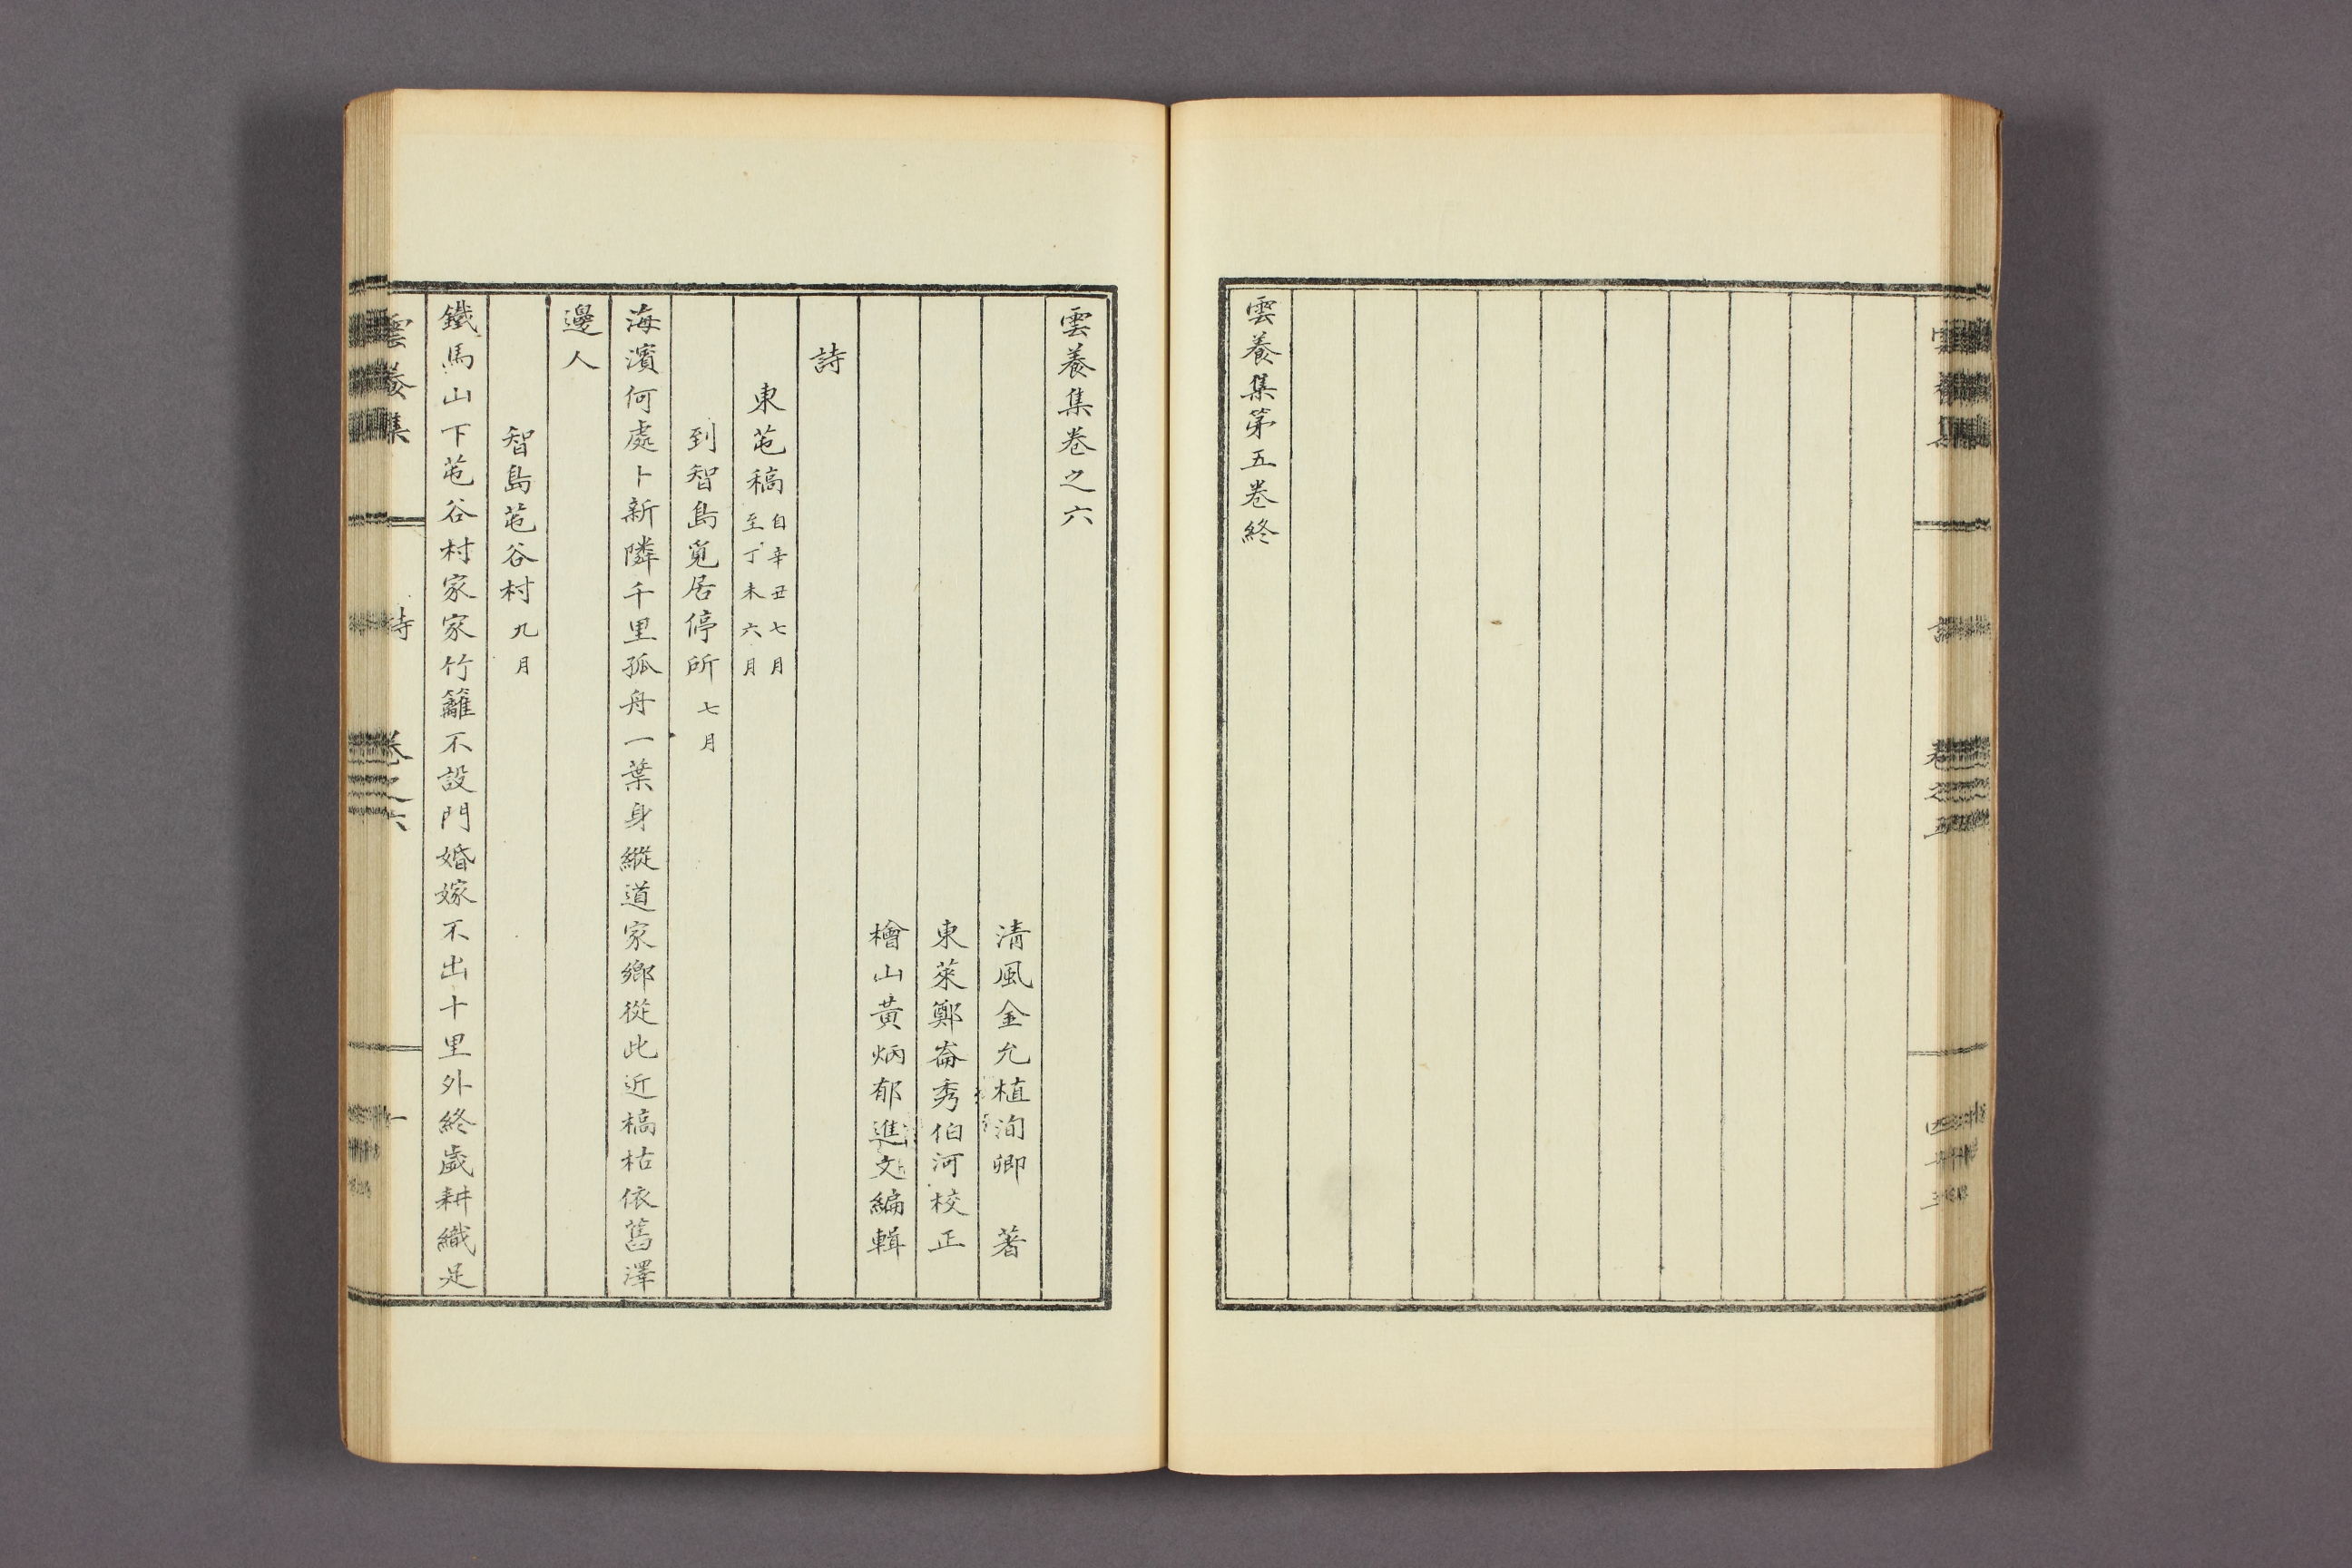 雲養集第五卷終
雲養集卷之六
清風金允植洵卿 著
東萊鄭崙秀伯河校正
檜山黃炳郁進文編輯
詩
東芚稿 自辛丑七月
至丁未六月
到智島覓居停所 七月
海濱何處卜新隣千里孤舟一葉身縱道家鄉從此近槁枯依舊澤
邊人
智島芚谷村 九月
鐵馬山下芚谷村家家竹籬不設門婚嫁不出十里外終歲耕織足
雲養集
詩
卷之六
一